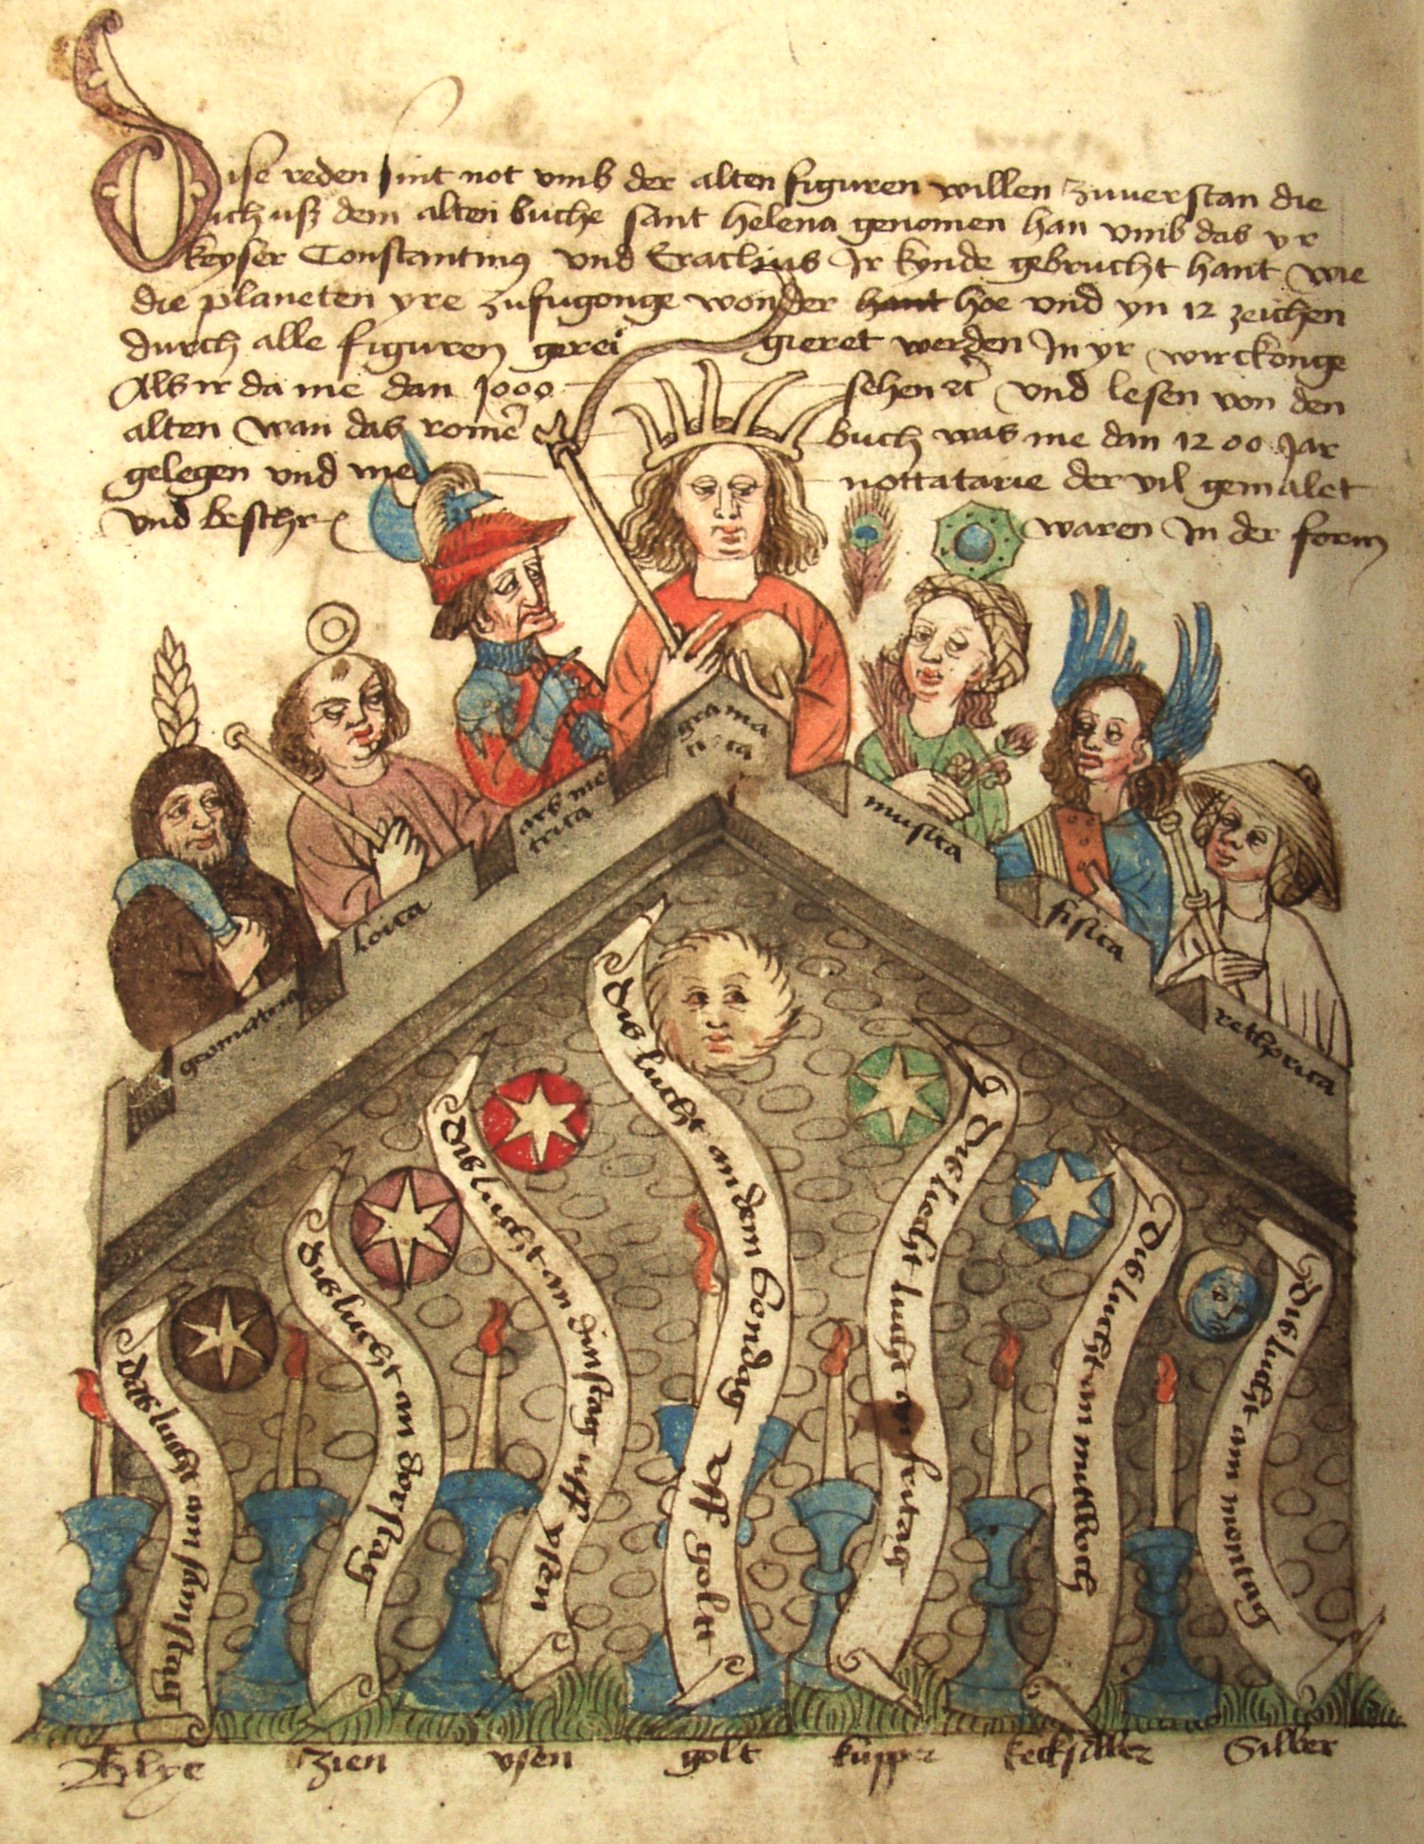 Dise reden sint not vmb der alten figuren willen zuuerstan die
ich uß dem alten buche sant Helena genomen han vmb das yr
keyser Constantinus vnd Eraclius Ir kynde gebrucht hant wie
die planeten yre zufugonge wonder hant hoe vnd yn 12 zeichen
durch alle figuren gerei gieret werden In yr wirckonge
Als ir da me dan 1000 sehen vnd lesen von den
alten wan das buch was me dan 1200 Jar
gelegen vnd me nottatarie der vil gemalet
vnd beschr waren In der form
grama
tica
ars me
trica
musica
loica
fisica
rethorica
Dis lucht an dem Sondag vff goltt
Dis lucht an dinstag uff ysen
Dis lucht an
Dis lucht am
Dis lucht fritag
Dis lucht am mitwoch
Dis lucht am montag
Blye zien ysen golt kupper kecksilber Silber